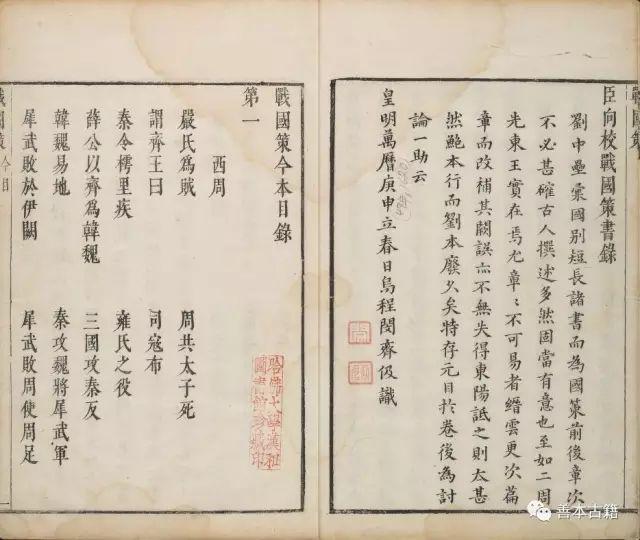 戰國策
臣向校戰國策書錄
劉中壘彙國別短長諸書而為國策前後章次
不必甚確古人撰述多然固當有意也至如二周
先東王實在焉尤章〻不可易者縉雲更次篇
章而改補其闕誤亦不無失得東陽詆之則太甚
然鮑本行而劉本廢久矣特存元目於卷後為討
論一助云
皇明萬曆庚申立春日烏程閔齊伋識
戰國策今本目錄
第一
西周
嚴氏為賊　周共太子死
謂齊王曰　司寇布
秦令樗里疾　雍氏之役
薛公以齊為韓魏　三國攻秦反
韓魏易地　秦攻魏將犀武軍
犀武敗於伊闕　犀武敗周使周足
戰國策　今目
哈佛大學漢和
圖書館珍藏印
善本古籍